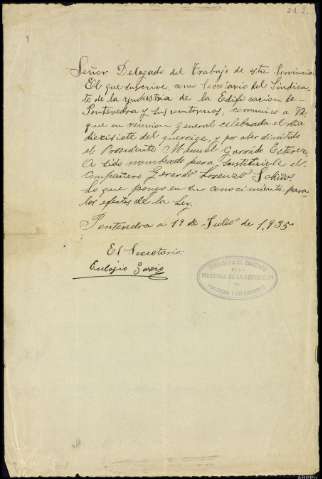 Señor Delegado del Trabajo de esta Provincia
El que suscrive como Secretario del Sindica-
to de la Yndustria de la Edificacion de
Pontevedra y sus contornos, comunico a Vd.
que en reunion general celebrada el dia
diecisiete del que rige, y por aber dimitido
el Presidente Manuel Garrido
a sido nombrado para sustituirle el
compañero Gerardo Lorenzo
Lo que pongo en su conocimiento para
los efectos de la Ley.
Pontevedra a 19 de Julio de 1,935
El Secretario
Eulogio